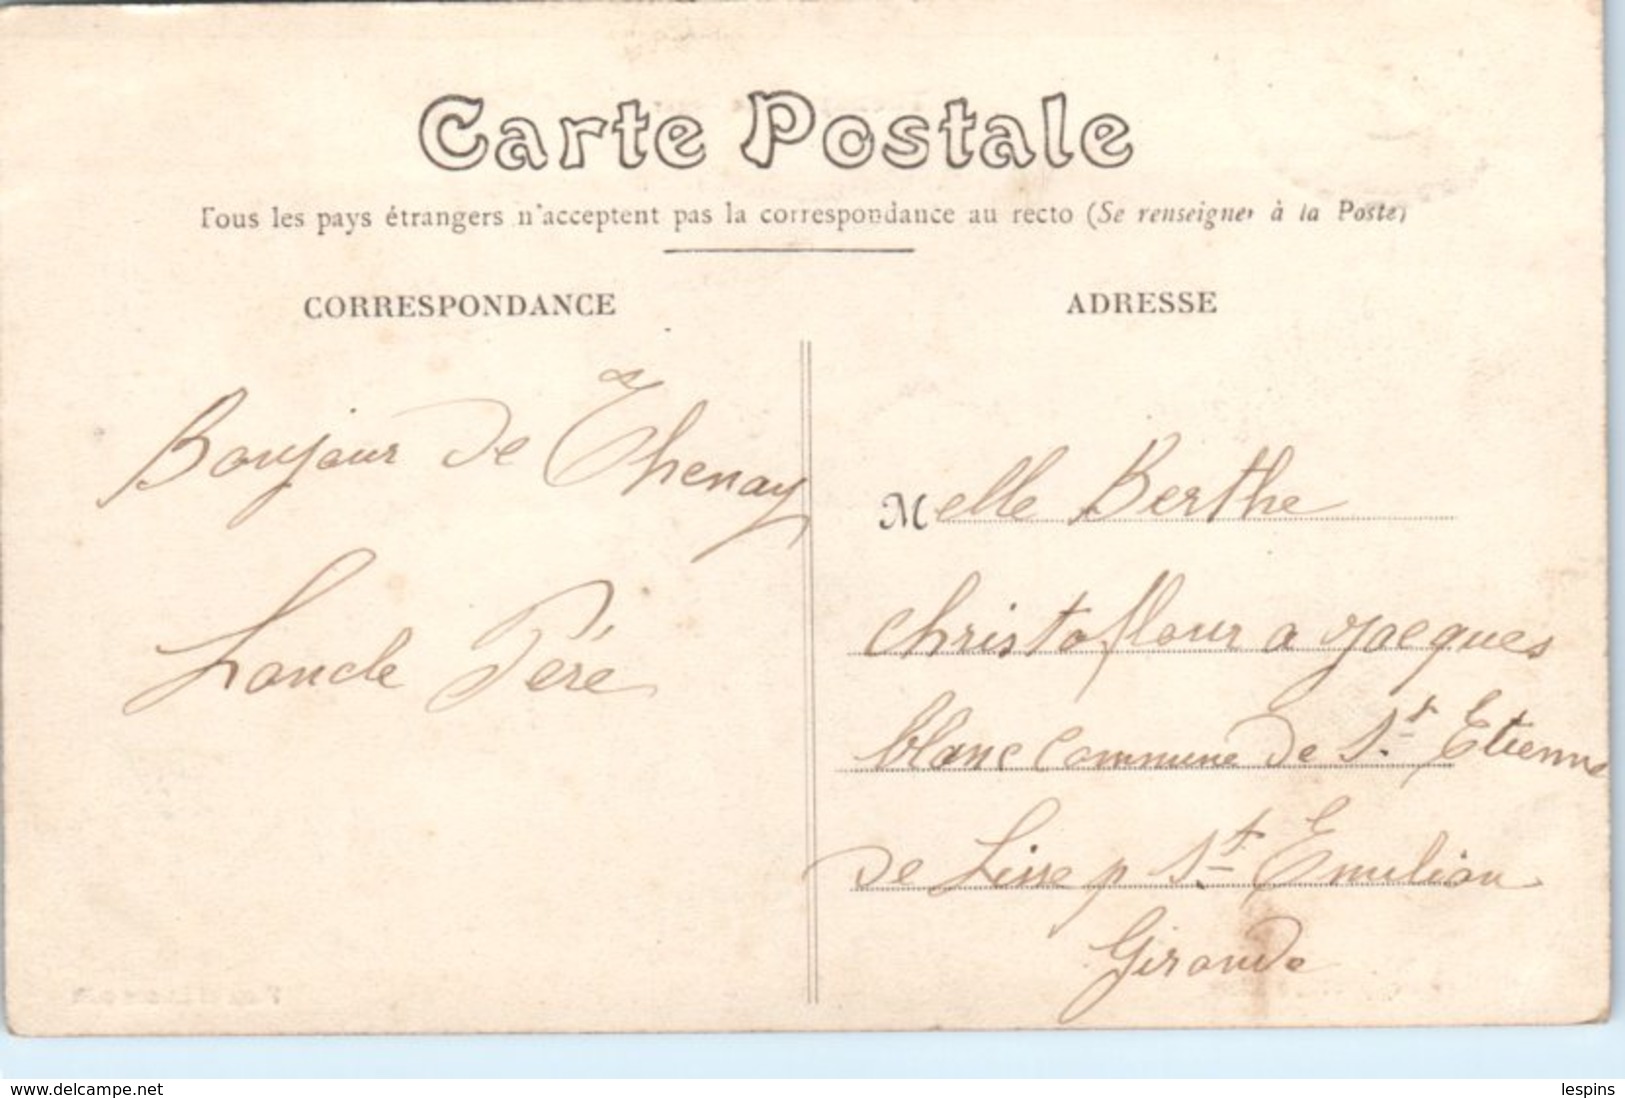 Carte Postale
Tous les pays étrangers n'acceptent pas la correspondance au recto (Se renseigner à la Poste)
CORRESPONDANCE
ADRESSE
Bonjour de Thenay
Loncle Père
Melle Berthe
christoflour a Jacques
blanc commune de St. Etienne
de Lisse p St. Emilion
Gironde
www.delcampe.net
lespins